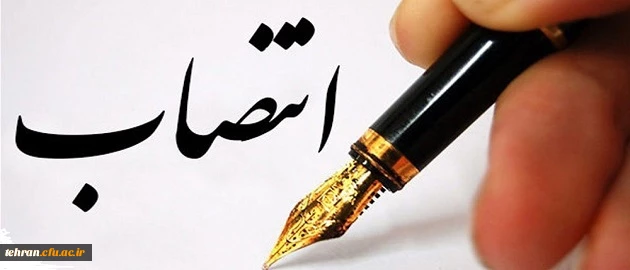 انتصاب
tehran.cfu.ac.ir